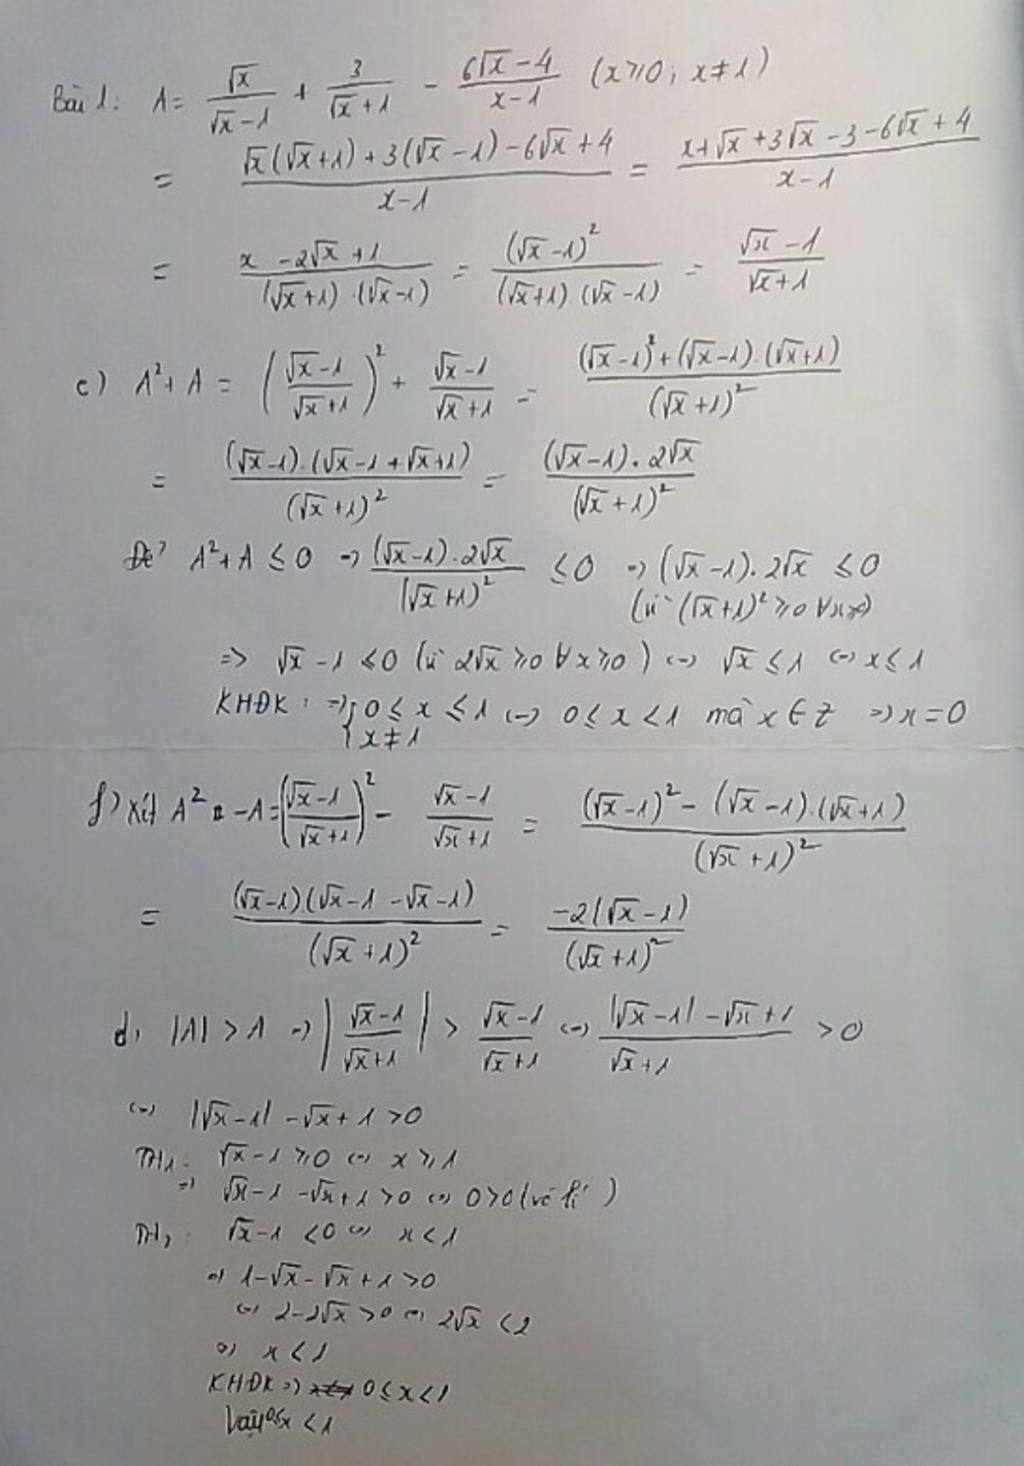 Bài 1: A = √x/(√x-1) + 3/(√x+1) - (6√x-4)/(x-1) (x⩾0; x≠1)
= (√x(√x+1)+3(√x-1)-6√x+4)/(x-1) = (x+√x+3√x-3-6√x+4)/(x-1)
= (x-2√x+1)/((√x+1).(√x-1)) = (√x-1)²/((√x+1).(√x-1)) = (√x-1)/(√x+1)
c) A²+A = ((√x-1)/(√x+1))² + (√x-1)/(√x+1) = ((√x-1)²+(√x-1).(√x+1))/(√x+1)²
= ((√x-1).(√x-1+√x+1))/(√x+1)² = ((√x-1).2√x)/(√x+1)²
Để A²+A ≤ 0 => ((√x-1).2√x)/(√x+1)² ≤ 0 => (√x-1).2√x ≤ 0
(vì (√x+1)² ⩾0 ∀x⩾0)
=> √x-1 ≤0 (vì 2√x ⩾0 ∀x⩾0) <=> √x ≤ 1 <=> x ≤ 1
KHĐK: => { 0≤x≤1 <=> 0≤x<1 mà x∈Z => x=0
x≠1
f) Xét A² - A = ((√x-1)/(√x+1))² - (√x-1)/(√x+1) = ((√x-1)² - (√x-1).(√x+1))/(√x+1)²
= ((√x-1)(√x-1-√x-1))/(√x+1)² = (-2(√x-1))/(√x+1)²
d, |A| > A => |(√x-1)/(√x+1)| > (√x-1)/(√x+1) <=> (|√x-1|-√x+1)/(√x+1) > 0
<=> |√x-1| - √x+1 >0
TH1: √x-1 ⩾0 <=> x⩾1
=> √x-1-√x+1>0 <=> 0>0 (vô lí)
TH2: √x-1 <0 <=> x<1
=> 1-√x-√x+1>0
<=> 2-2√x>0 <=> 2√x <2
<=> x<1
KHĐK => 0≤x<1
Vậy 0≤x<1